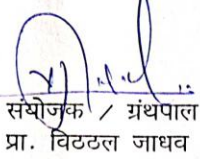 संयोजक / ग्रंथपाल
प्रा. विठठल जाधव